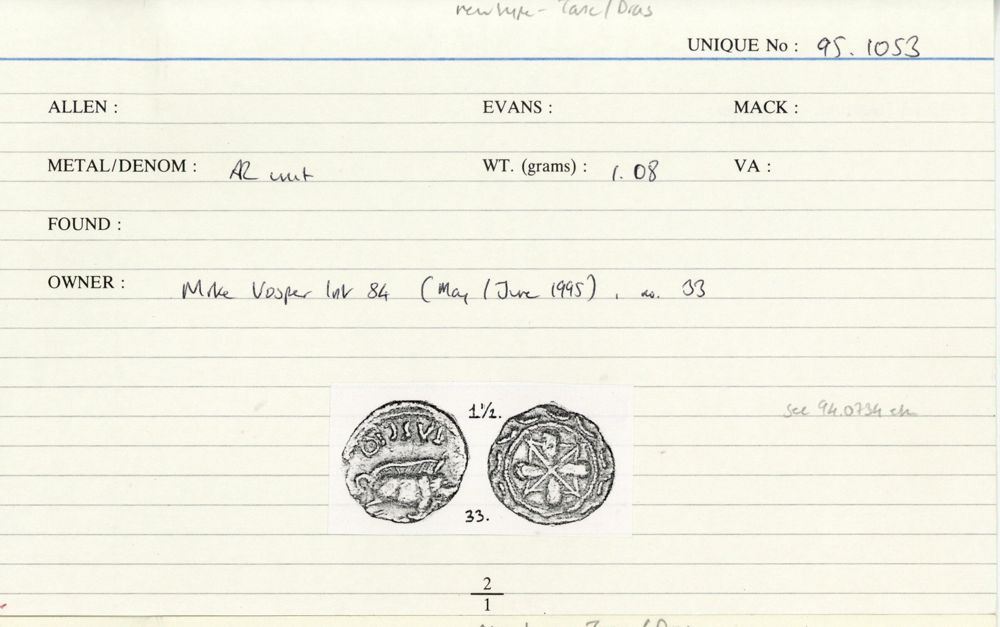 new type - Tasc/Dias
UNIQUE No : 95.1053
ALLEN : EVANS : MACK :
METAL/DENOM : AR unit WT. (grams) : 1.08 VA :
FOUND :
OWNER : Mike Vosper list 84 (May/June 1995), no. 33
1½.
see 94.0734 etc
33.
2
1